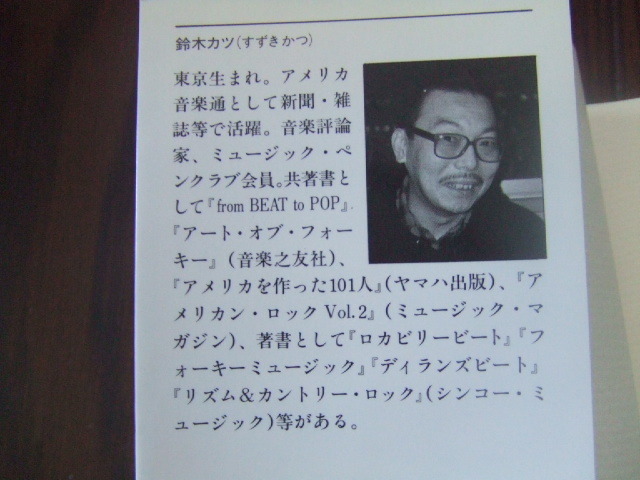 鈴木カツ(すずきかつ)
東京生まれ。アメリカ
音楽通として新聞・雑
誌等で活躍。音楽評論
家、ミュージック・ペ
ンクラブ会員。共著書と
して『from BEAT to POP』
『アート・オブ・フォー
キー』(音楽之友社)、
『アメリカを作った101人』(ヤマハ出版)、『ア
メリカン・ロック Vol.2』(ミュージック・マ
ガジン)、著書として『ロカビリービート』『フ
ォーキーミュージック』『ディランズビート』
『リズム＆カントリー・ロック』(シンコー・ミ
ュージック)等がある。